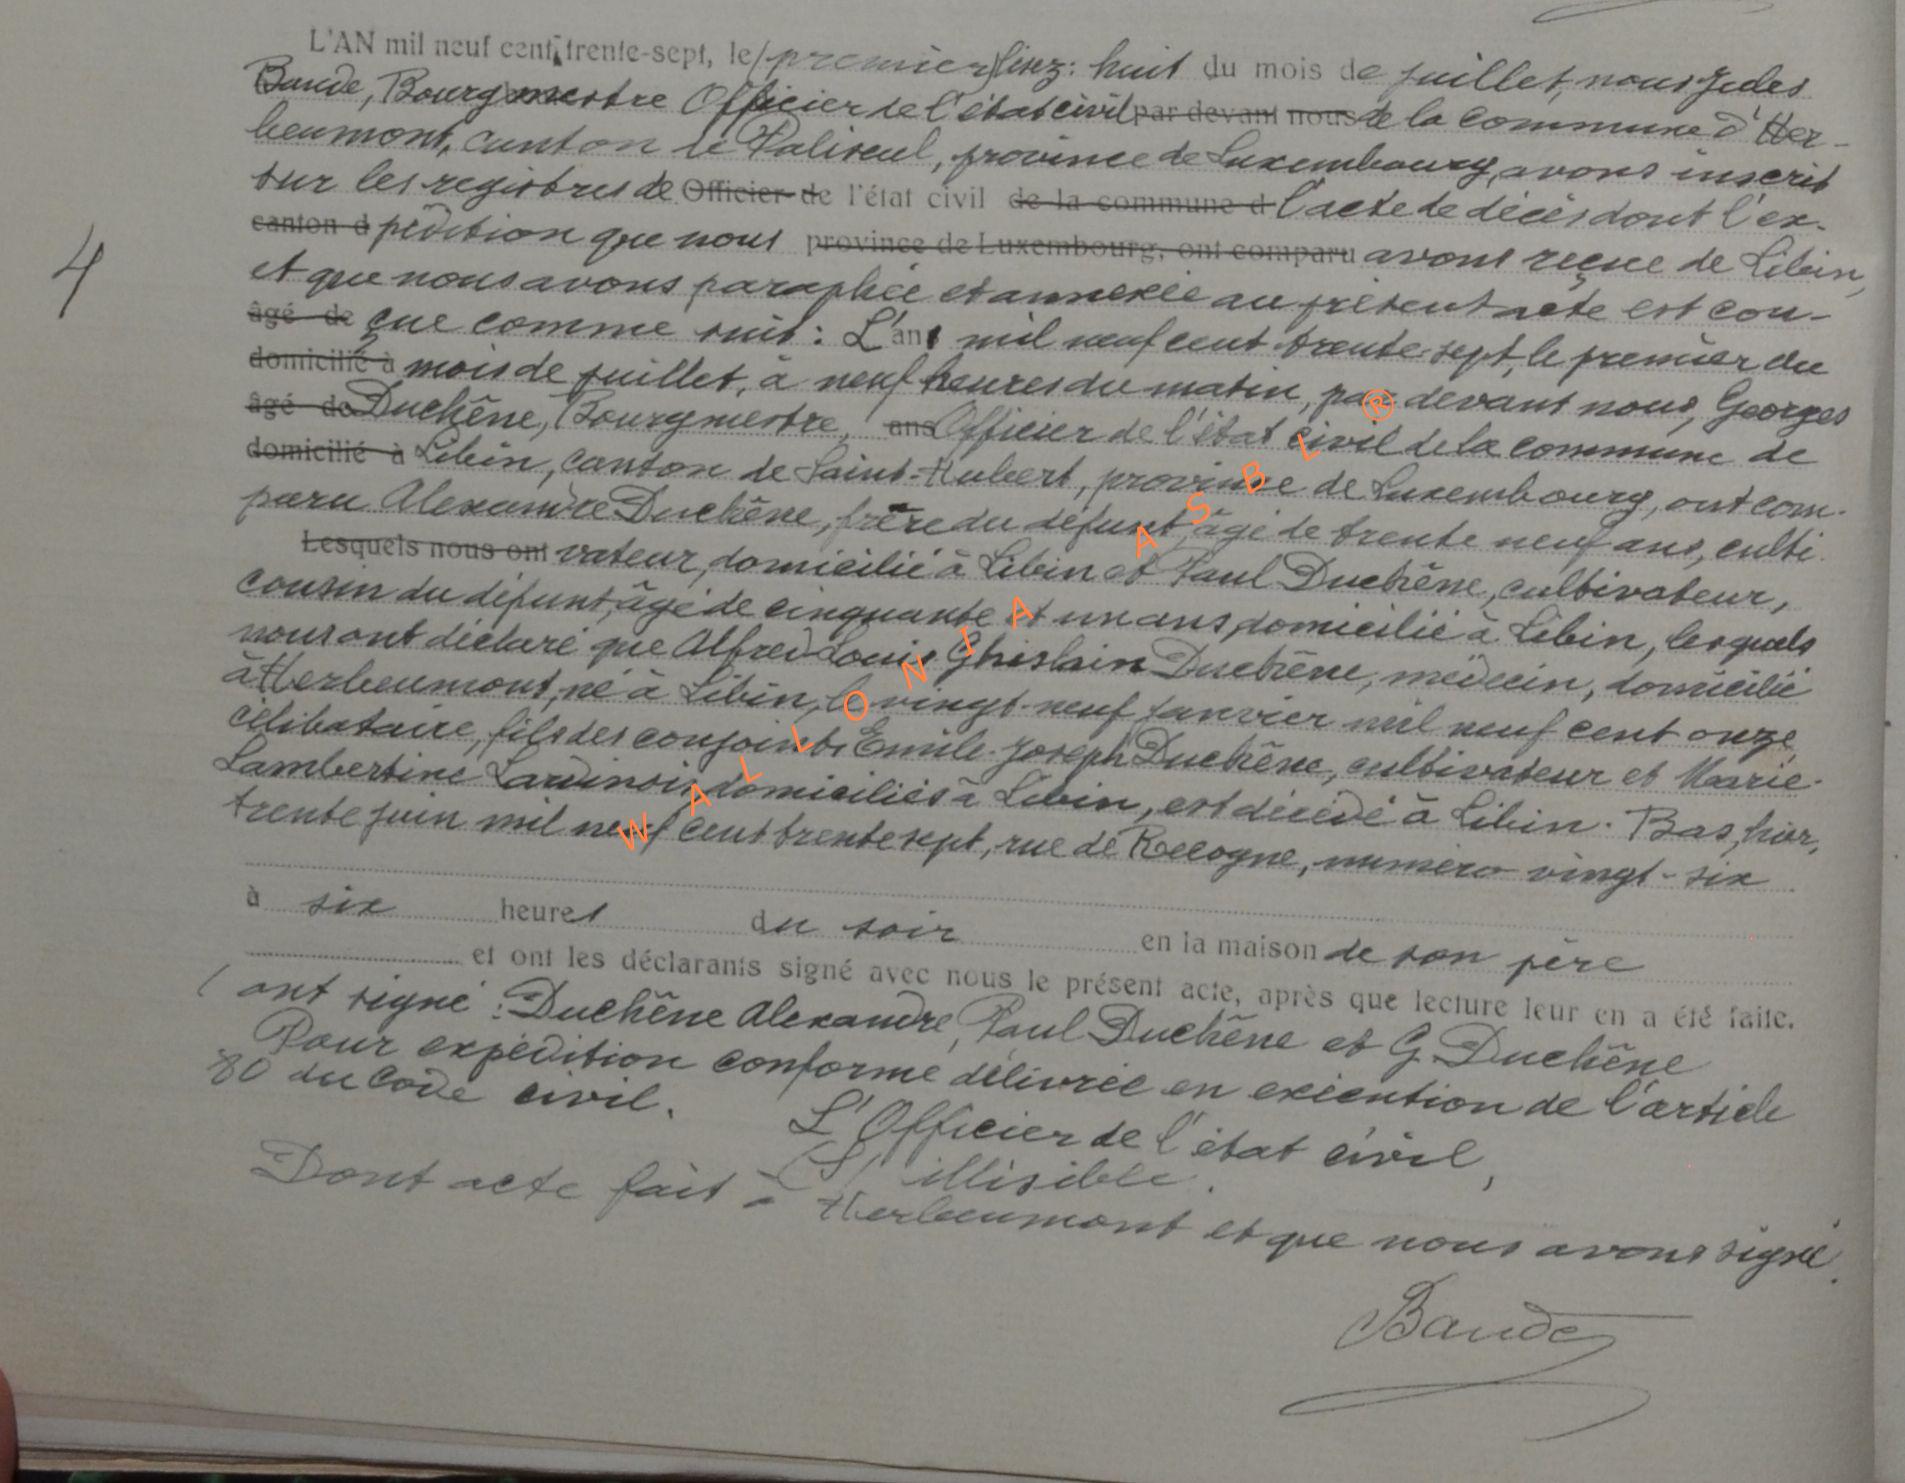 L'AN mil neuf cent trente-sept, le (premier) lisez: huit du mois de juillet, nous Jules
Baude, Bourgmestre Officier de l'état civil par devant nous de la commune d'Her-
beumont, canton de Paliseul, province de Luxembourg, avons inscrit
sur les registres de Officier de l'état civil de la commune d l'acte de décès dont l'ex-
canton d pédition que nous province de Luxembourg, ont comparu avons reçue de Libin,
4
et que nous avons paraphée et annexée au présent acte est con-
âgé de çue comme suit: L'an mil neuf cent trente-sept, le premier du
domicilié à mois de juillet, à neuf heures du matin, par devant nous, Georges
âgé de Duchêne, Bourgmestre, ans Officier de l'état civil de la commune de
domicilié à Libin, canton de Saint-Hubert, province de Luxembourg, ont com-
paru Alexandre Duchêne, frère du défunt, âgé de trente neuf ans, culti-
Lesquels nous ont vateur, domicilié à Libin et Paul Duchêne, cultivateur,
cousin du défunt, âgé de cinquante et un ans, domicilié à Libin, lesquels
nous ont déclaré que Alfred Louis Ghislain Duchêne, médecin, domicilié
à Herbeumont, né à Libin, le vingt-neuf janvier mil neuf cent onze,
célibataire, fils des conjoints Emile-Joseph Duchêne, cultivateur et Marie-
Lambertine Lardinois, domiciliés à Libin, est décédé à Libin-Bas, hier,
trente juin mil neuf cent trente sept, rue de Recogne, numéro vingt-six
à six heures du soir en la maison de son père
et ont les déclarants signé avec nous le présent acte, après que lecture leur en a été faite.
(ont signé: Duchêne Alexandre, Paul Duchêne et G. Duchêne
Pour expédition conforme délivrée en exécution de l'article
80 du Code civil.
L'Officier de l'état civil,
(S) illisible.
Dont acte fait à Herbeumont et que nous avons signé.
Baude
WALLONIA ASBL ®